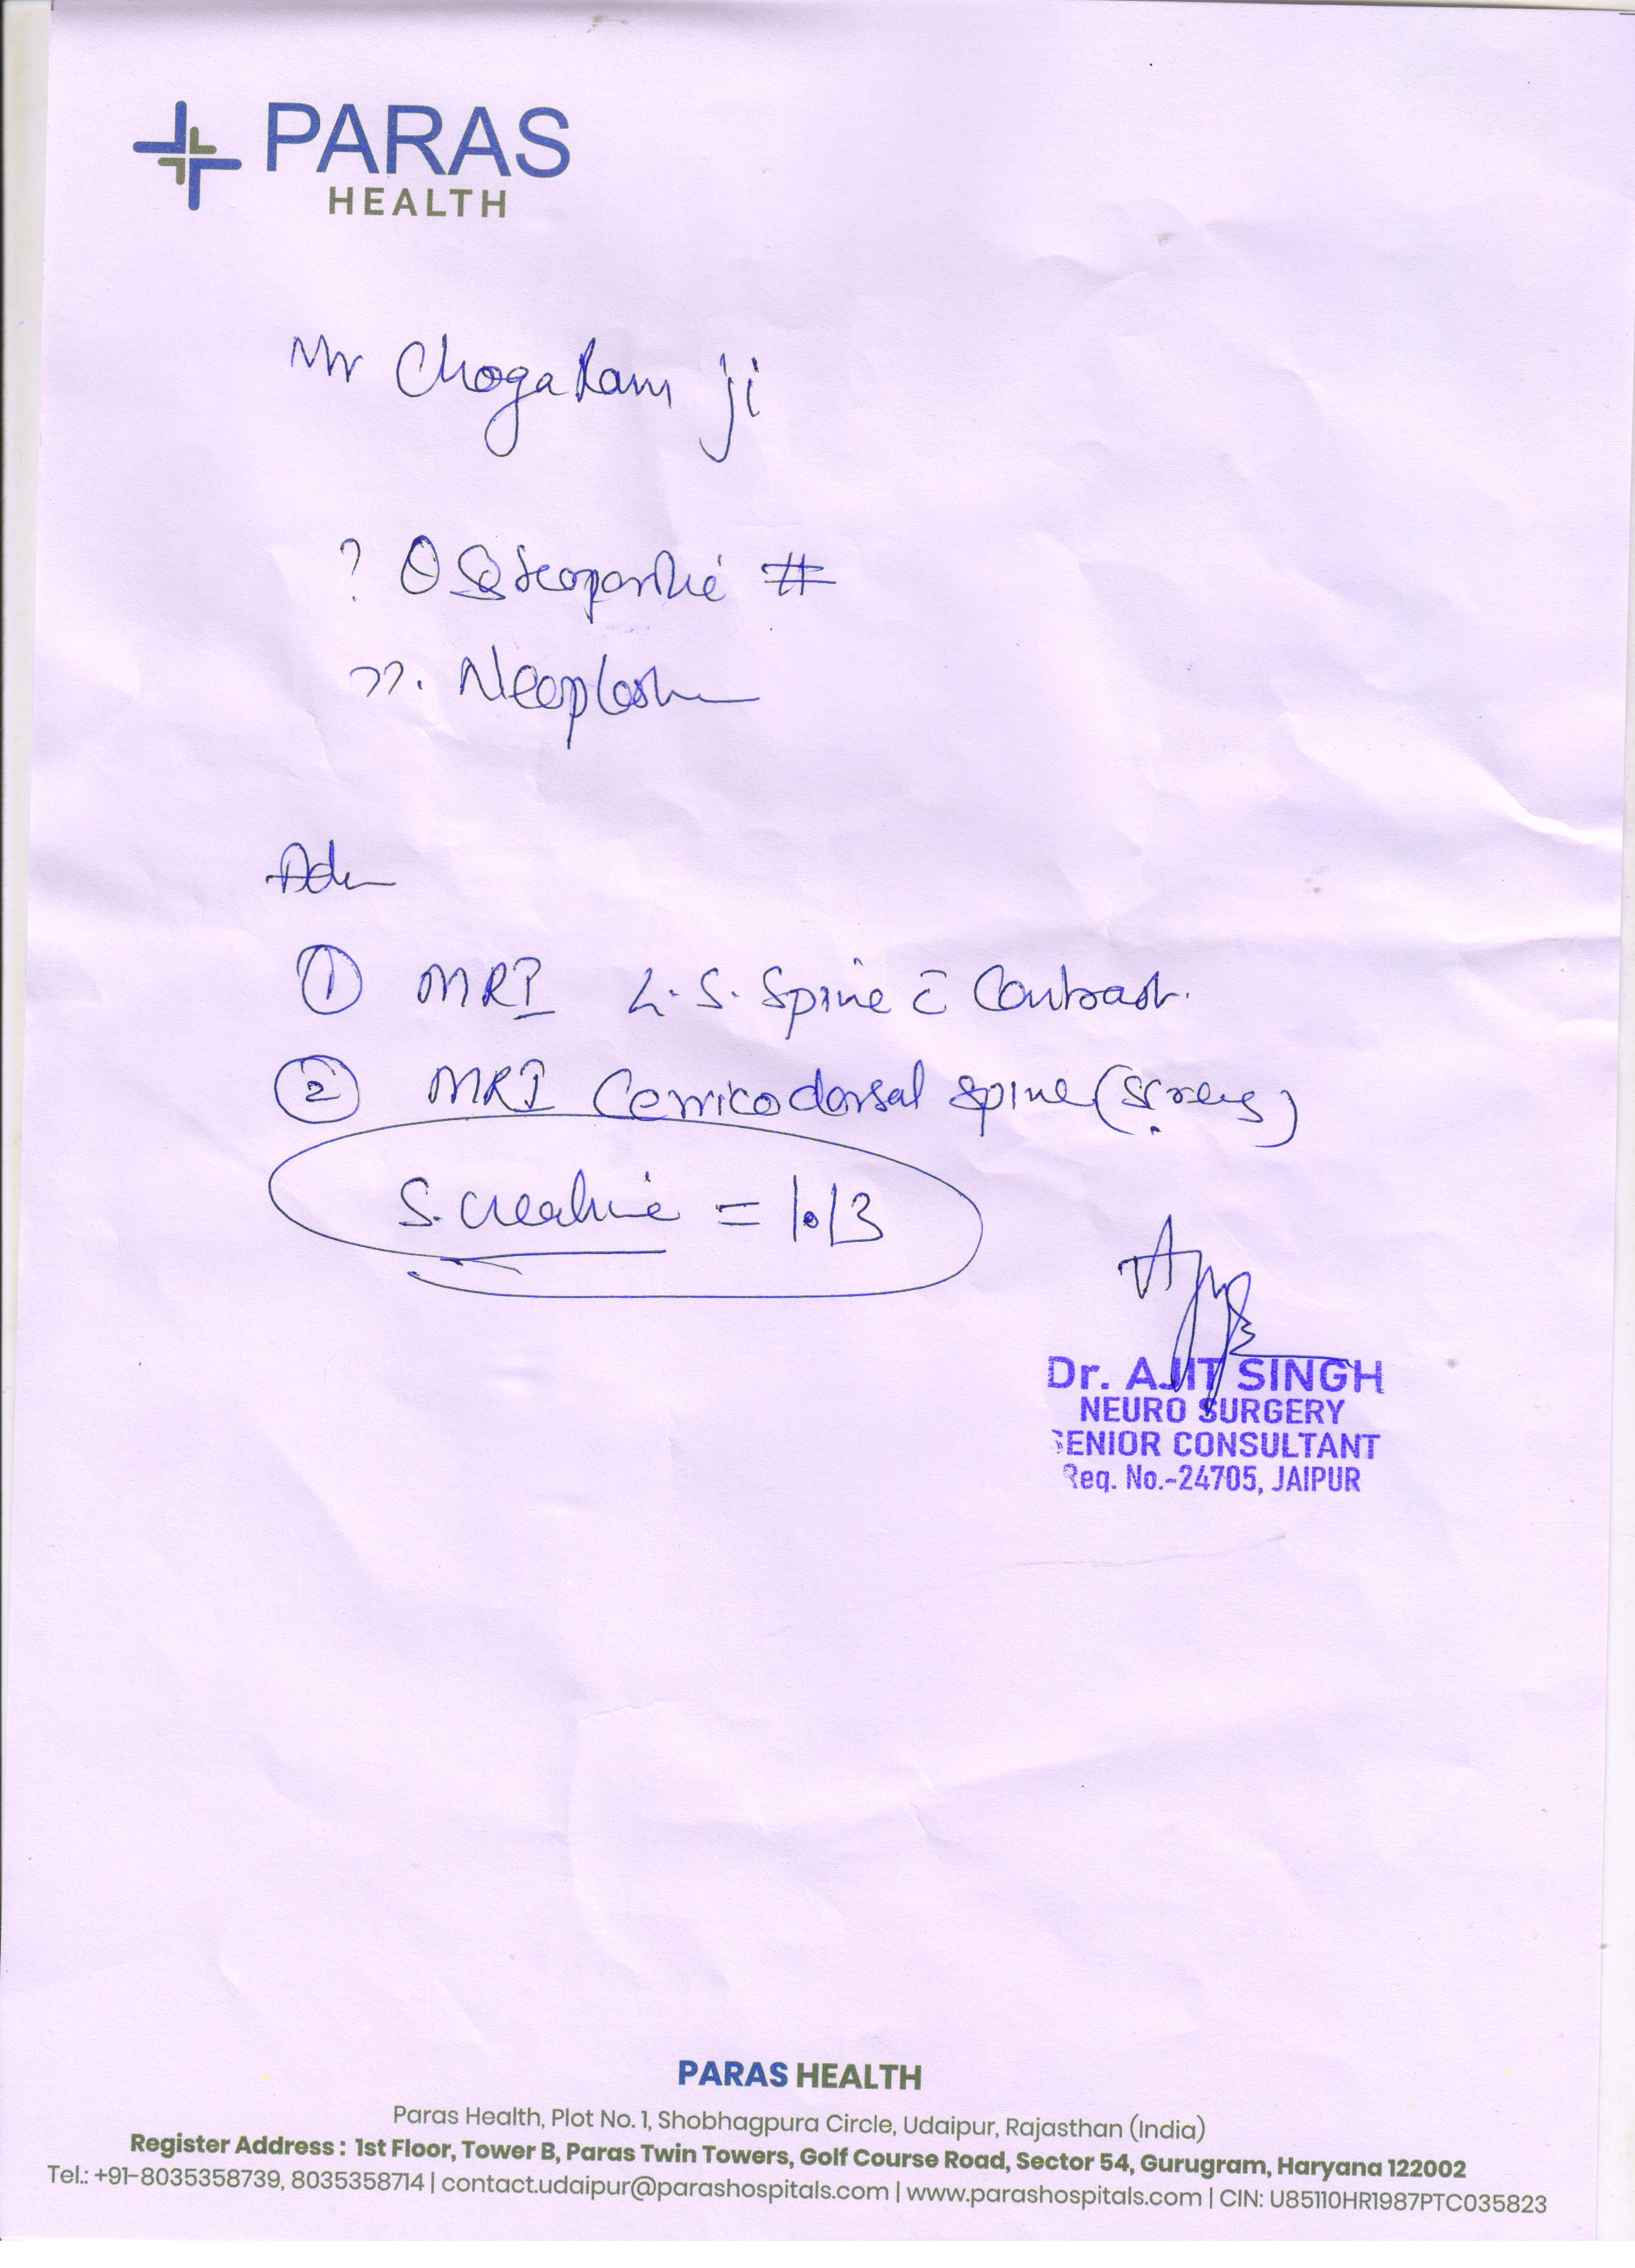 PARAS
HEALTH
Mr Chogaram ji
? Osteoporotic #
??. Neoplastic
Adv
① MRI L.S. Spine c̄ Contrast.
② MRI Cervicodorsal spine (Screng)
S. creatinine = 1.13
Dr. AJIT SINGH
NEURO SURGERY
SENIOR CONSULTANT
Reg. No.-24705, JAIPUR
PARAS HEALTH
Paras Health, Plot No. 1, Shobhagpura Circle, Udaipur, Rajasthan (India)
Register Address : 1st Floor, Tower B, Paras Twin Towers, Golf Course Road, Sector 54, Gurugram, Haryana 122002
Tel.: +91-8035358739, 8035358714 | contact.udaipur@parashospitals.com | www.parashospitals.com | CIN: U85110HR1987PTC035823